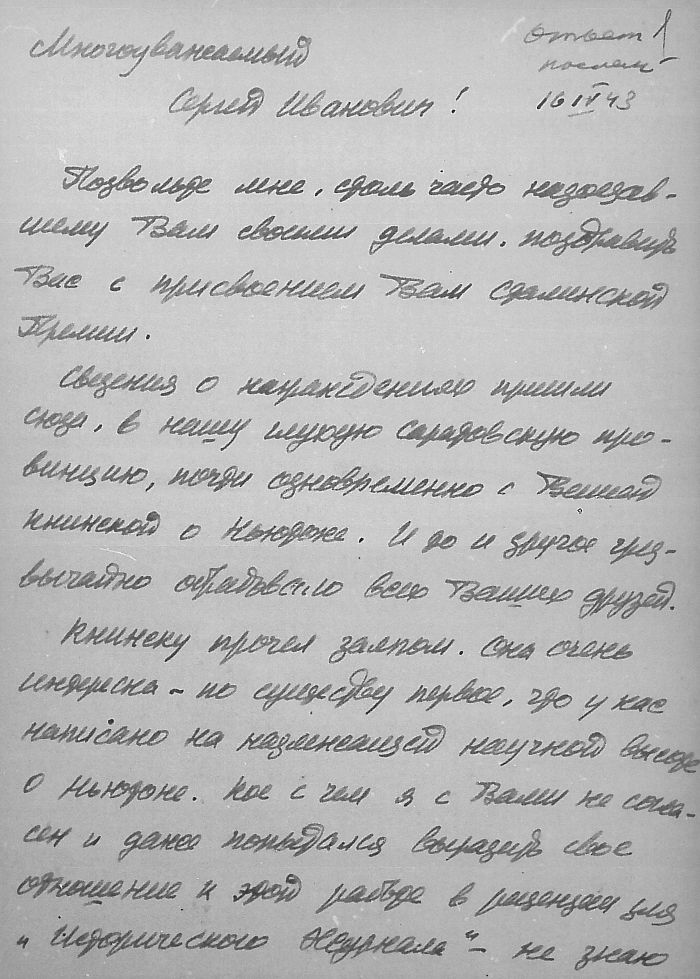 Многоуважаемый
Ответ
послан
16 IV 43
Сергей Иванович!
Позвольте мне, столь часто надоедав-
шему Вам своими делами, поздравить
Вас с присвоением Вам Сталинской
Премии.
Сведения о награждениях пришли
сюда, в нашу глухую саратовскую про-
винцию, почти одновременно с Вашей
книжкой о Ньютоне. И то и другое чрез-
вычайно обрадовало всех Ваших друзей.
Книжку прочел залпом. Она очень
интересна – по существу первое, что у нас
написано на надлежащей научной высоте
о Ньютоне. Кое с чем я с Вами не согла-
сен и даже попытался выразить свое
отношение к этой работе в рецензии для
„Исторического Журнала" – не знаю